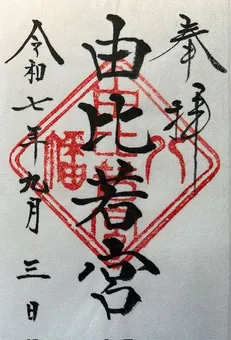 奉拝
由比若宮
令和七年九月三日
八幡